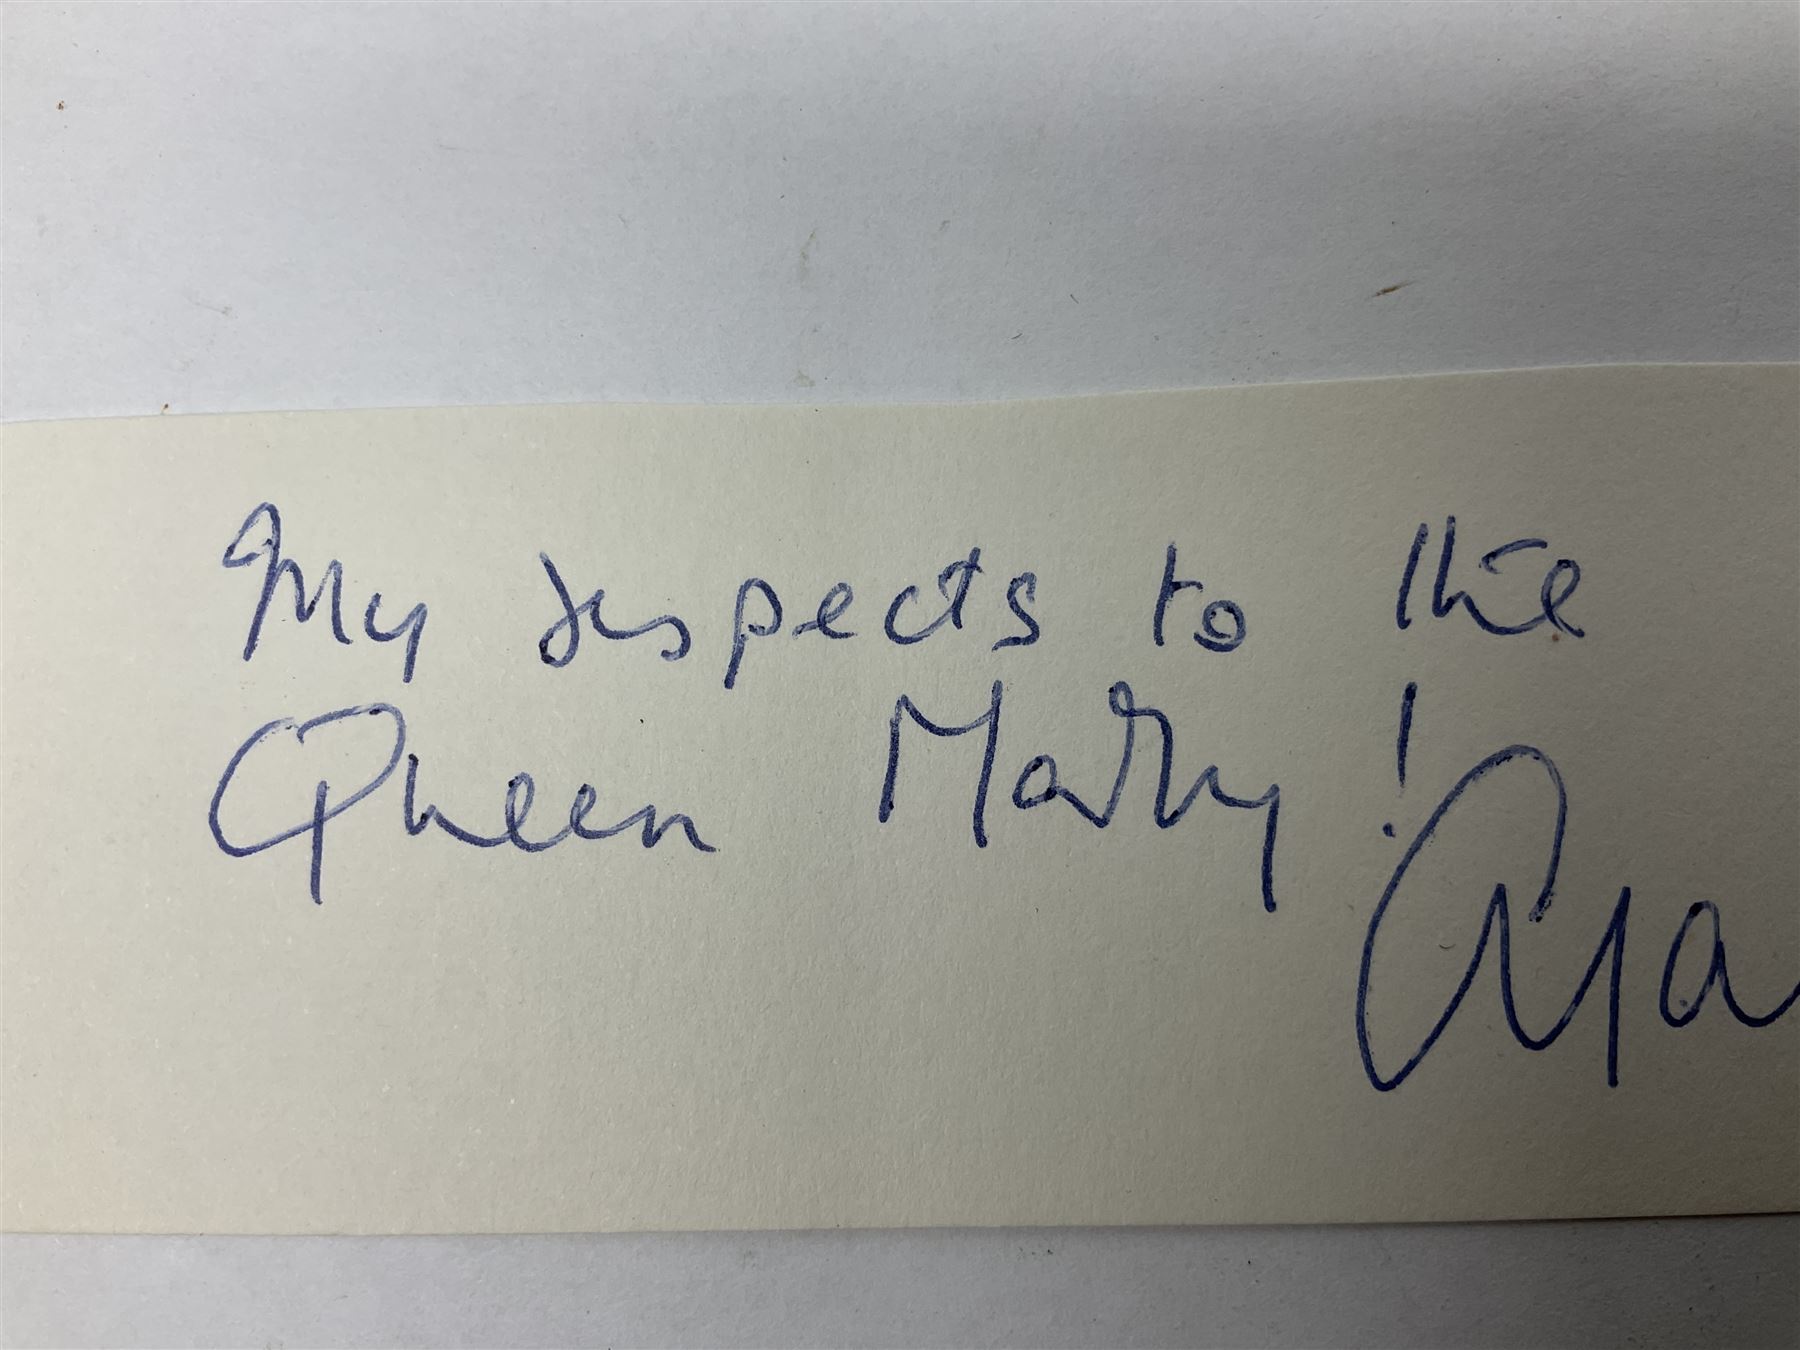 My respects to the
Queen Mary!